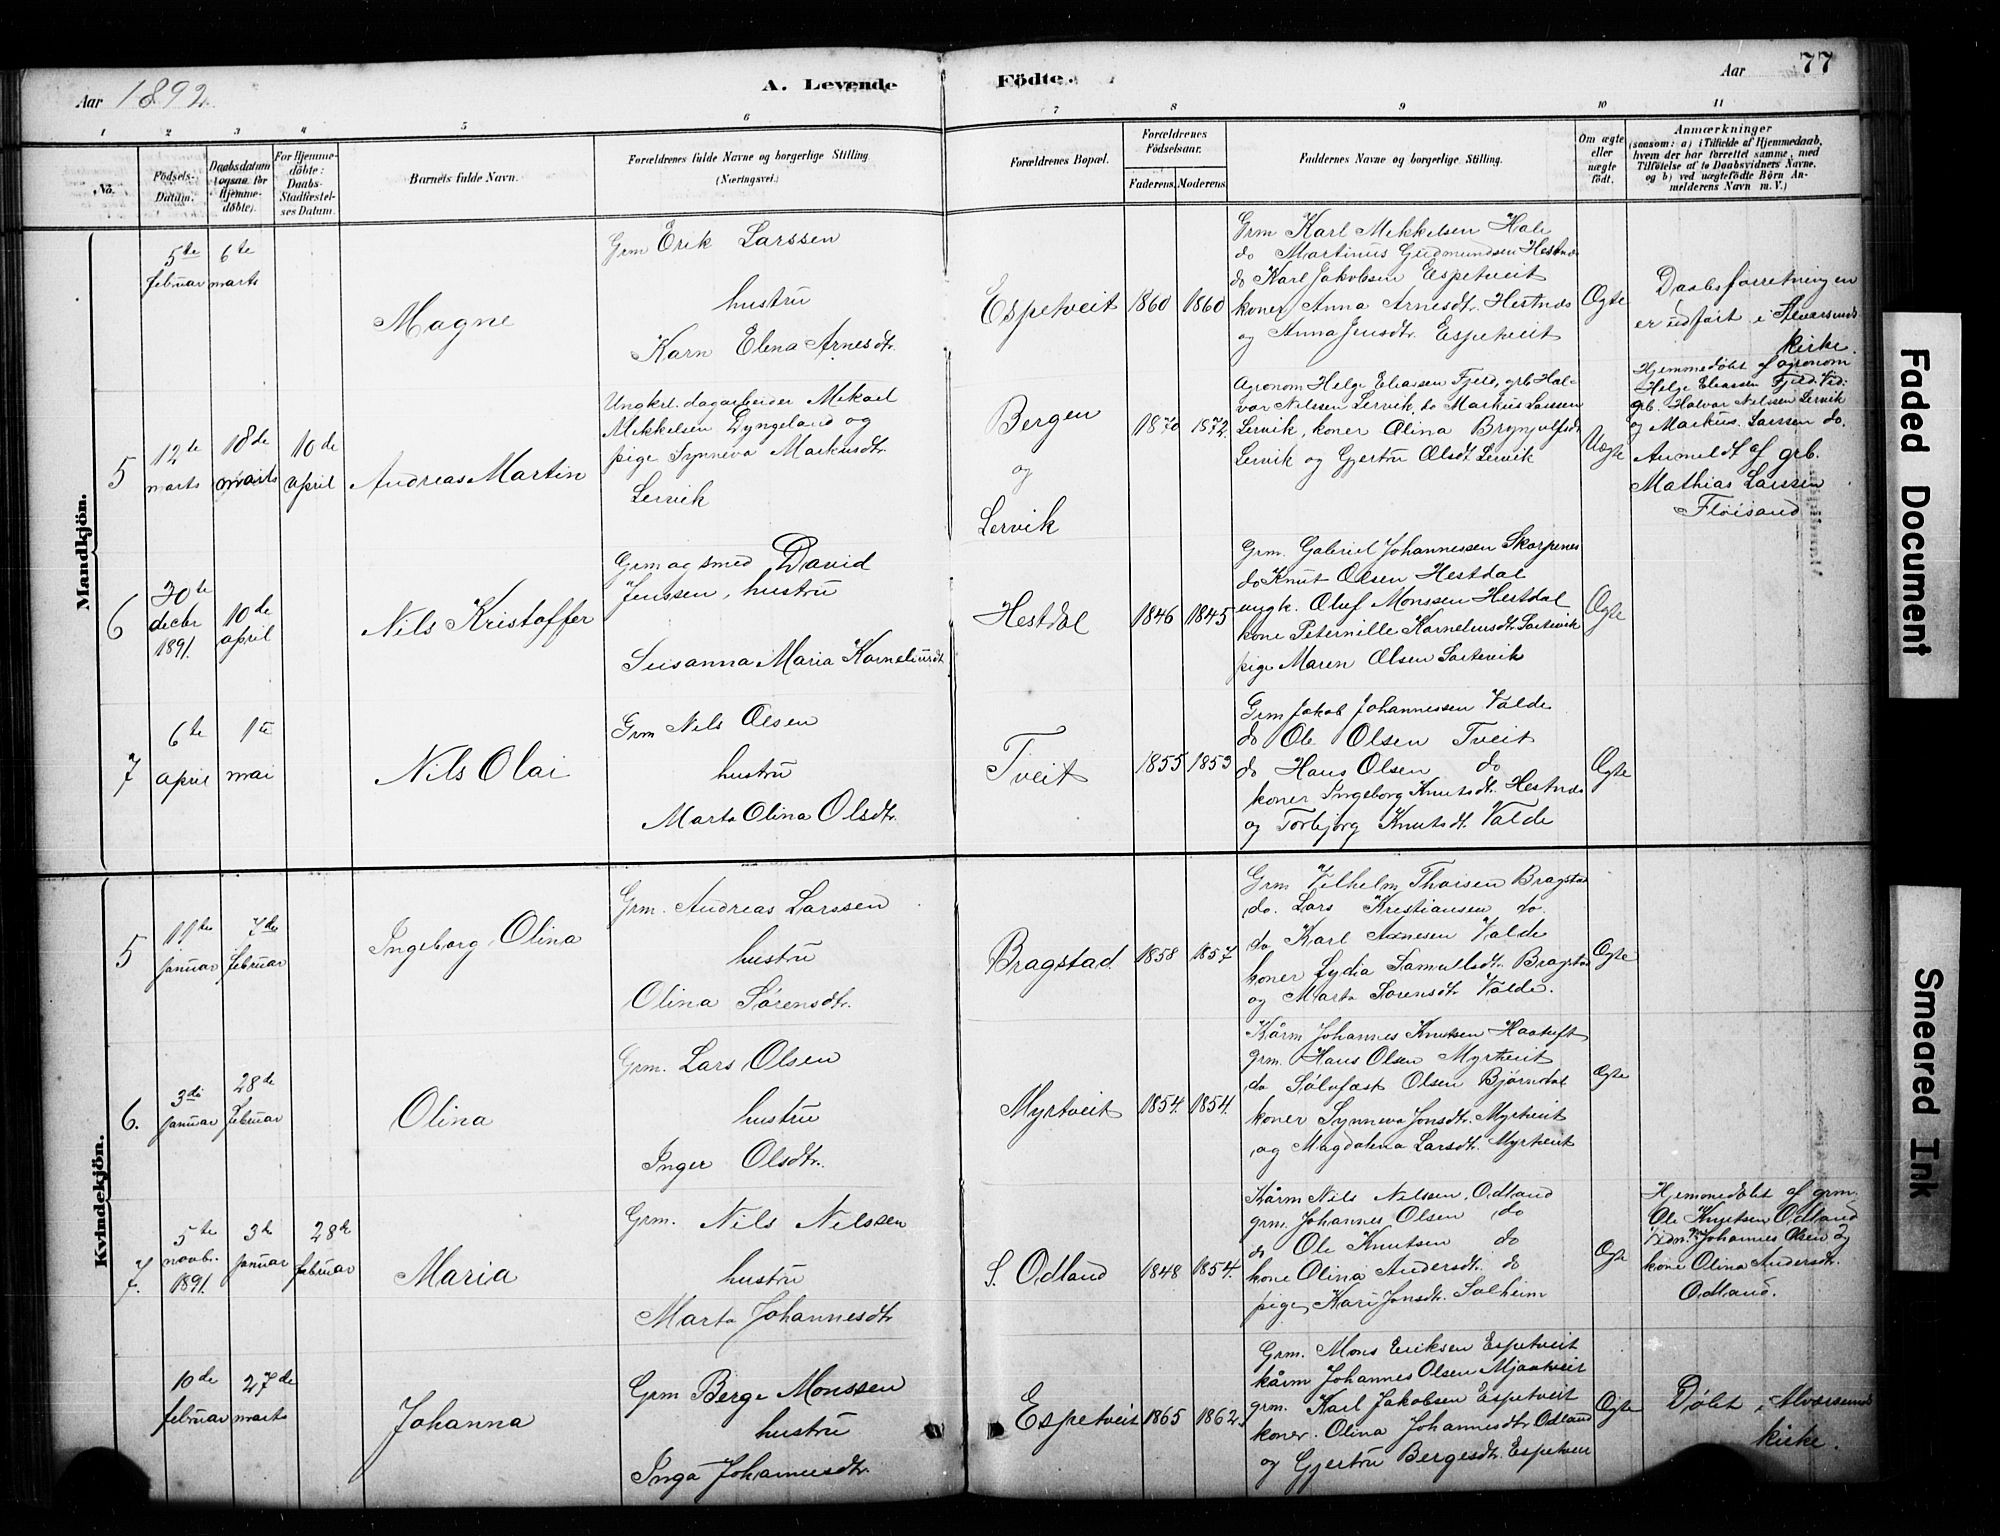 Aar 1892.
A. Levende Födte.
Aar 77
1 2 3 4 5 6 7 8 9 10 11
No.
Födsels-Datum.
Daabsdatum (ogsaa for Hjemmedöbte).
For Hjemmedöbte: Daabs-Stadfæstelses Datum.
Barnets fulde Navn.
Forældrenes fulde Navne og borgerlige Stilling (Næringsvei.)
Forældrenes Bopæl.
Forældrenes Födselsaar.
Faderens. Moderens.
Faddernes Navne og borgerlige Stilling.
Om ægte eller uægte födt.
Anmærkninger
(saasom: a) i Tilfælde af Hjemmedaab, hvem der har forrettet samme, med Tilföielse af to Daabsvidners Navne, og b) ved uægtefödte Börn Anmelderens Navn m. V.)
Mandkjön.
5te februar
6te marts
Magne
Grm Erik Larssen
hustru
Karn Elena Arnesdtr.
Espetveit
1860 1860
Grm Karl Mekkelsen Hole
do Martinus Gudmundsen Hestnes
do Karl Jakobsen Espetveit
koner Anna Arnesdtr. Hestnes
og Anna Jensdtr. Espetveit
Ægte
Daabsforretningen
er udført i Alversunds
kirke.
5
12te marts
18de marts
10de april
Andreas Martin
Ungkrl. dagarbeider Mikael
Mikkelsen Dyngeland og
pige Synneva Markusdtr.
Lervik
Bergen
og
Lervik
1870 1872.
Agronom Helge Eliassen Fjeld, grb Hal-
var Nilssen Lervik, do Markus Larssen
Lervik, koner Olina Brynjulfsdt.
Lervik og Gjertru Olsdt. Lervik
Uægte
Hjemmedøbt af agronom
Helge Eliassen Fjeld. Vid:
grb. Halvar Nilssen Lervik
og Markus Larssen do.
Anmeldt af grb.
Mathias Larssen
Fløisand
6
30te decbr 1891.
10de april
Nils Kristoffer
Grm og smed David
Jenssen, hustru
Susanna Maria Korneliusdt.
Hestdal
1846 1845
Grm. Gabriel Johannessen Skarpenes
do Knut Olsen Hestdal
ungk. Oluf Monssen Hestdal
kone Peternille Korneliusdt. Sartevik
pige Maren Olsen Sartevik
Ægte
7
6te april
1te mai
Nils Olai
Grm Nils Olsen
hustru
Marta Olina Olsdtr.
Tveit
1855 1853
Grm Jakob Johannessen Valde
do Ole Olsen Tveit
do Hans Olsen do
koner Ingeborg Knutsdt. Hestnes
og Torbjorg Knutsdt. Valde
Ægte
Kvindekjön.
5
11te januar
7de februar
Ingeborg Olina
Grm. Andreas Larssen
hustru
Olina Sørensdtr.
Bragstad.
1858 1857.
Grm Vilhelm Thoisen Bragstad
do. Lars Kristiansen do.
do Karl Arnesen Valde
koner Lydia Samuelsdt. Bragstad
og Marta Sorensdtr. Valde.
Ægte
6.
3die januar
28de februar
Olina
Grm. Lars Olsen
hustru
Inger Olsdtr.
Myrtveit
1854. 1854.
Kårm Johannes Knutsen Haatuft
grm. Hans Olsen Myrtveit
do Sølvfast Olsen Bjørndal
koner Synneva Jonsdt. Myrtveit
og Magdalena Larsdt. Myrtveit
Ægte
7.
5te novbr. 1891.
3die januar
28de februar
Maria
Grm. Nils Nilssen
hustru
Marta Johannesdtr
S. Odland
1848 1854.
Kårm Nils Nilssen Odland
grm. Johannes Olsen do
do Ole Knutsen do
kone Olina Andersdt. do
pige Kari Jonsdtr. Solheim
Ægte
Hjemmedøbt af grm.
Ole Knutsen Odland
Vidn. Johannes Olsen og
kone Olina Andersdtr.
Odland.
10de februar
27de marts
Johanna
Grm Berge Monssen
hustru
Inga Johannesdtr.
Espetveit
1865 1862.
Grm. Mons Eriksen Espetveit
kårm Johannes Olsen Mjaatveit
grm. Karl Jakobsen Espetveit
koner. Olina Johannesdtr Odland
og Gjertru Bergesdtr. Espetveit
Ægte
Døbt i Alversund
kirke.
Faded Document
Smeared Ink